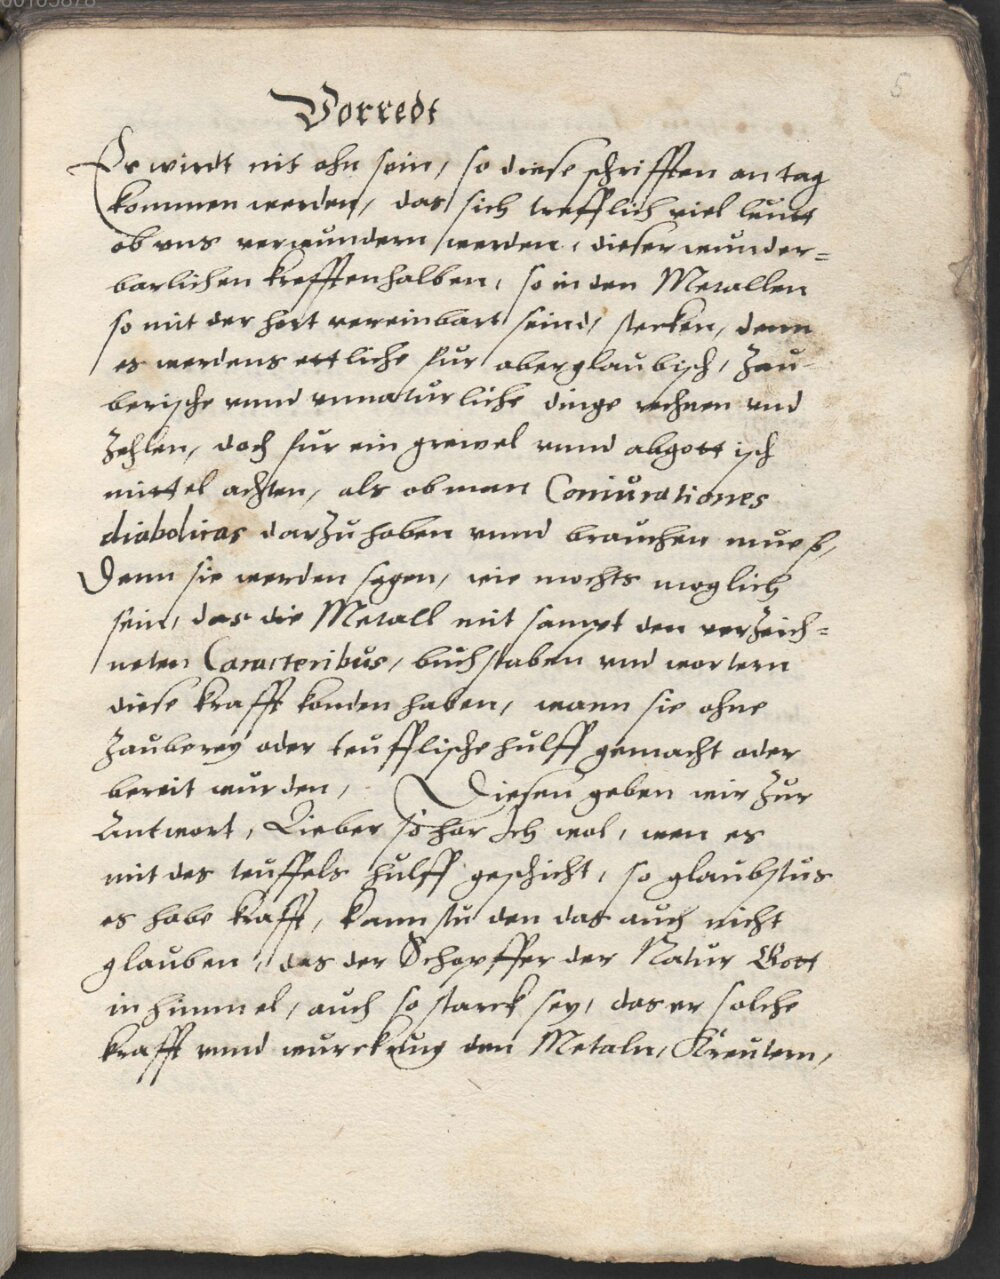 00105878
5
Vorredt
Es wirdt nit ohn sein, so diese schrifften an tag
kommen werden, das sich trefflich viel leutt
ob vns verwundern werden, dieser wunder=
barlichen krefften halben, so in den Metallen
so mit der hert vereinbart seind, stecken, denn
es werdens ettliche fur aberglaubisch, Zau-
berische vnnd vnnaturliche dinge rechnen vnd
Zehlen, doch fur ein grewel vnnd abgottisch
mittel achten, als ob man Coniurationes
diabolicas darzu haben vnnd brauchen mueß,
Denn sie werden sagen, wie mochts moglich
sein, das die Metall mit sampt den verzeich=
neten Caracteribus, buchstaben vnd wortern
diese krafft konden haben, wann sie ohne
Zauberey oder teufflische hulff gemacht oder
bereit wurden, Diesen geben wir Zur
Antwort, Lieber so hor Ich wol, wen es
mit des teuffels hulff geschicht, so glaubstus
es habe krafft, kannstu den das auch nicht
glauben, das der Schopffer der Natur Gott
in himmel, auch so starck sey, das er solche
krafft vnnd wurckung den Metaln, Kreutern,